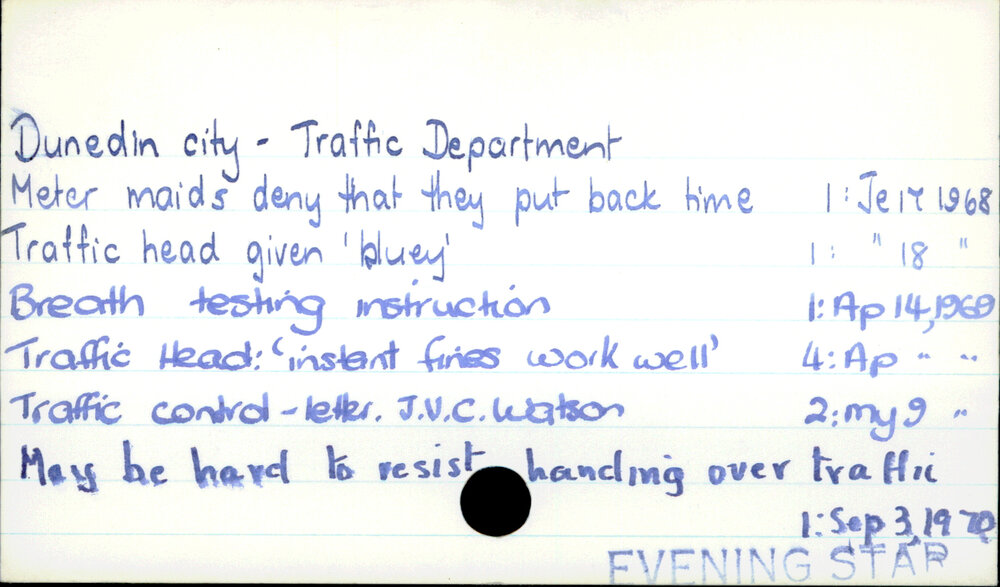 Dunedin city - Traffic Department
Meter maids deny that they put back time 1: Je 17 1968
Traffic head given 'bluey' 1: " 18 "
Breath testing instruction 1: Ap 14, 1969
Traffic Head: 'instant fines work well' 4: Ap " "
Traffic control - letter. J.V.C. Watson 2: my 9 "
May be hard to resist handing over traffic
1: Sep 3, 1970
EVENING STAR